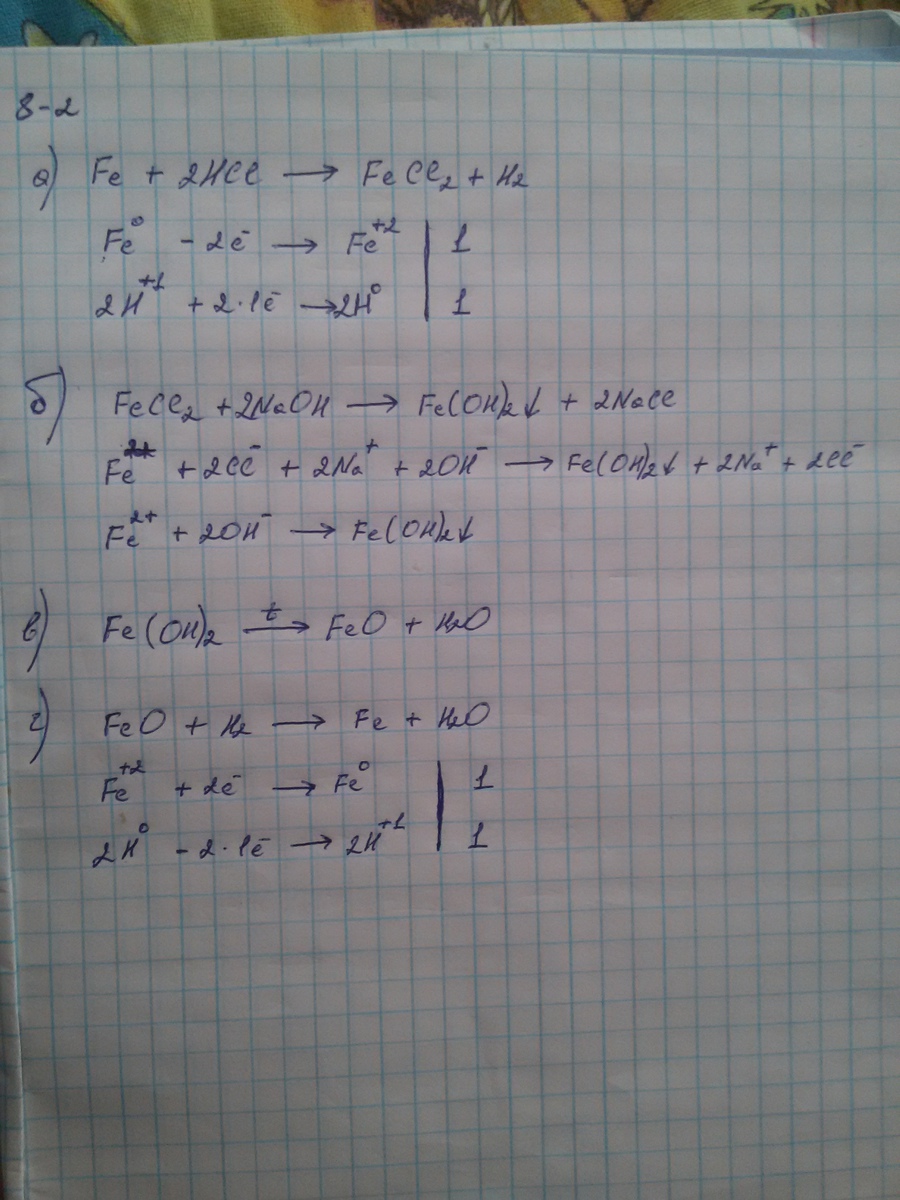 8-2
а) Fe + 2HCl → FeCl₂ + H₂
Fe⁰ - 2ē → Fe⁺² | 1
2H⁺¹ + 2·1ē → 2H⁰ | 1
б) FeCl₂ + 2NaOH → Fe(OH)₂↓ + 2NaCl
Fe²⁺ + 2Cl⁻ + 2Na⁺ + 2OH⁻ → Fe(OH)₂↓ + 2Na⁺ + 2Cl⁻
Fe²⁺ + 2OH⁻ → Fe(OH)₂↓
в) Fe(OH)₂ →ᵗ FeO + H₂O
г) FeO + H₂ → Fe + H₂O
Fe⁺² + 2ē → Fe⁰ | 1
2H⁰ - 2·1ē → 2H⁺¹ | 1